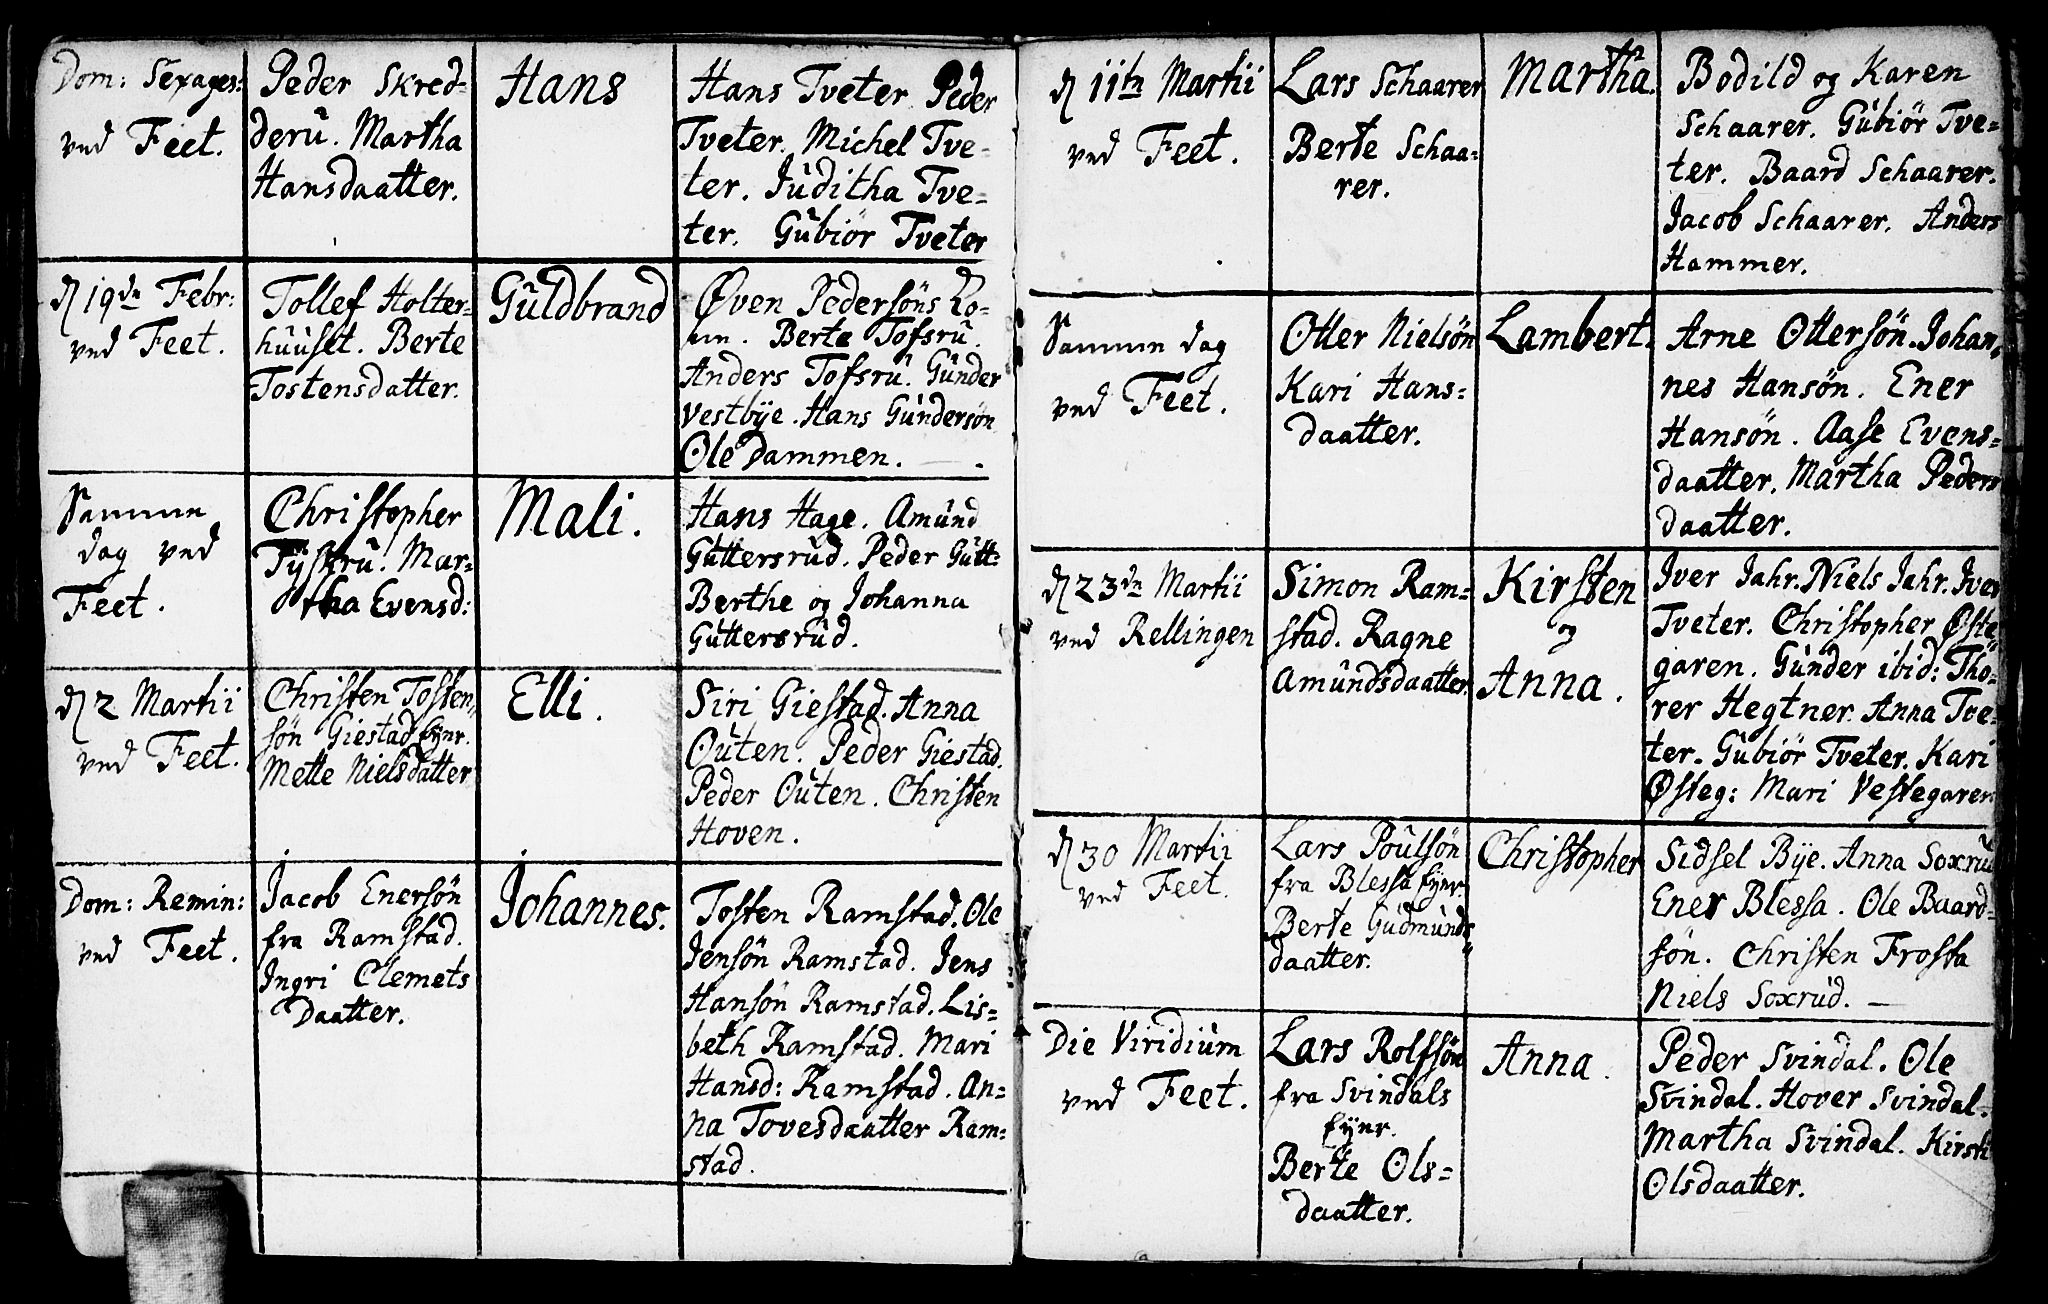 Dom: Sexages:
ved Feet.
Peder Skred-
deru. Martha
Hansdaatter.
Hans
Hans Tveter Peder
Tveter. Michel Tve-
ter. Juditha Tve-
ter. Gubiör Tveter
d 19de Febr:
ved Feet.
Tollef Holter-
huuset. Berte
Tostensdatter.
Guldbrand
Øven Pedersöns Ko-
ne. Berte Tofsru.
Anders Tofsru. Gunder
Vestbÿe. Hans Gundersön
Ole Dammen.
Samme
dag ved
Feet.
Christopher
Tÿskru. Mar-
tha Evensd:
Mali.
Hans Hage. Amund
Guttersrud. Peder Gutt:
Berthe og Johanna
Guttersrud.
d 2 Martii
ved Feet.
Christen Tosten-
sön Giestad Eÿer.
Mette Nielsdatter
Elli.
Siri Giestad. Anna
Outen. Peder Giestad.
Peder Outen. Christen
Hoven.
Dom: Remin:
ved Feet.
Jacob Enersön
fra Ramstad.
Ingri Clemets
Daatter.
Johannes.
Tosten Ramstad. Ole
Jensön Ramstad. Jens
Hansön Ramstad. Lis-
beth Ramstad. Mari
Hansd: Ramstad. An-
na Tovesdaatter Ram-
stad.
d 11te Martii
ved Feet.
Lars Schaarer
Berte Schaa-
rer.
Martha.
Bodild og Karen
Schaarer. Gubiör Tve-
ter. Baard Schaarer.
Jacob Schaarer. Anders
Hammer.
Samme dag
ved Feet.
Otter Nielsön
Kari Hans-
daatter.
Lambert.
Arne Ottersön. Johan-
nes Hansön. Ener
Hansön. Aase Evens-
daatter. Martha Peders
daatter.
d 23de Martii
ved Rellingen
Simon Ram-
stad. Ragne
Amundsdaatter.
Kirsten
og
Anna.
Iver Jahr. Niels Jahr. Iver
Tveter. Christopher Øste
garen. Gunder ibid: Tho-
rer Hegtner. Anna Tve-
ter. Gubiör Tveter. Kari
Østeg: Mari Vestegaren
d 30 Martii
ved Feet.
Lars Poulsön
fra Blessa Eÿer
Berte Gudmunds-
daatter.
Christopher
Sidsel Bÿe. Anna Soxrud
Ener Blessa. Ole Baard-
sön. Christen Frosta
Niels Soxrud.
Die Viridium
ved Feet.
Lars Rolfsön
fra Svindals
Eÿer.
Berte Ols-
daatter.
Anna.
Peder Svindal. Ole
Svindal. Hover Svindal.
Martha Svindal. Kirsti
Olsdaatter.